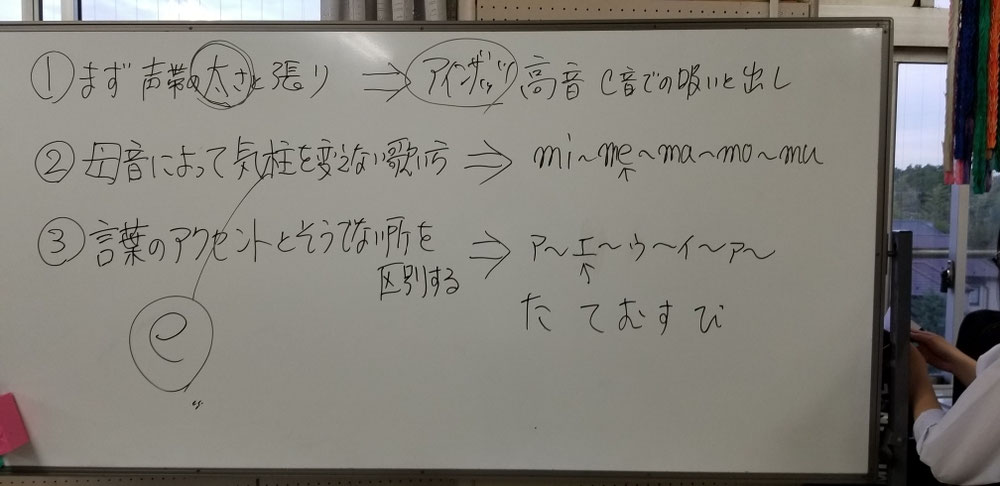 ① まず声帯の太さと張り ⇒ アインザッツ 高音 C音での吸いと出し
② 母音によって気柱を変えない歌い方 ⇒ mi～me～ma～mo～mu
③ 言葉のアクセントとそうでない所を区別する ⇒ ア～エ～ウ～イ～ア～
たてむすび
e